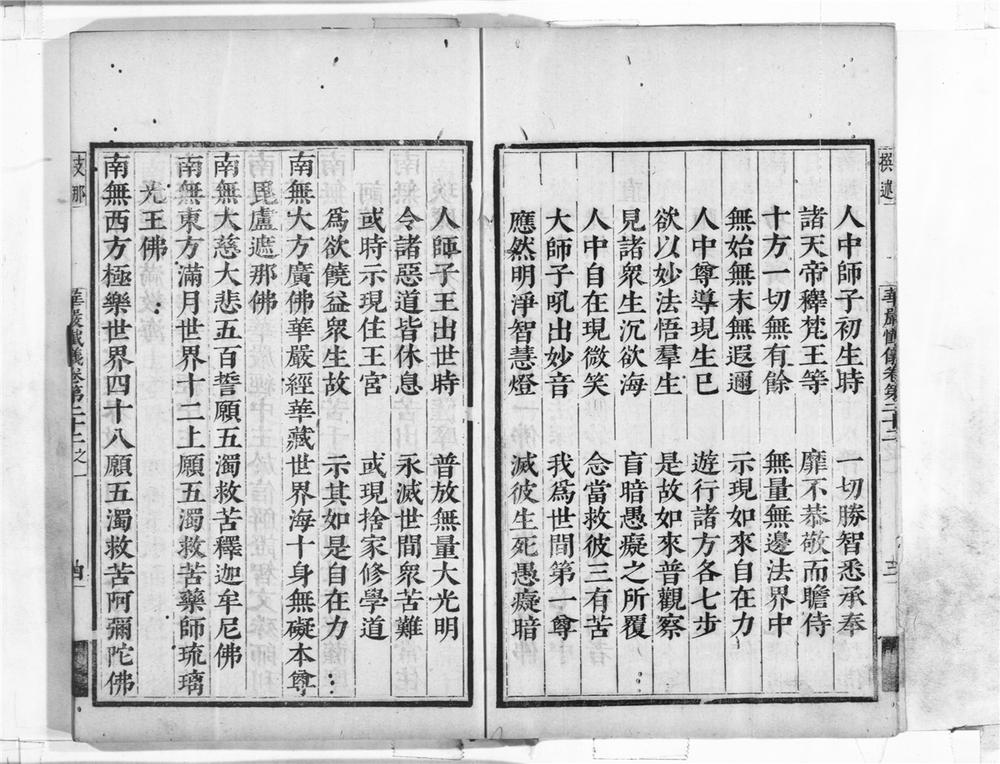 人中師子初生時 一切勝智悉承奉
諸天帝釋梵王等 靡不恭敬而瞻侍
十方一切無有餘 無量無邊法界中
無始無末無遐邇 示現如來自在力
人中尊導現生已 遊行諸方各七步
欲以妙法悟羣生 是故如來普觀察
見諸衆生沉欲海 盲暗愚癡之所覆
人中自在現微笑 念當救彼三有苦
大師子吼出妙音 我爲世間第一尊
應然明淨智慧燈 滅彼生死愚癡暗
人師子王出世時 普放無量大光明
令諸惡道皆休息 永滅世間衆苦難
或時示現住王宮 或現捨家修學道
爲欲饒益衆生故 示其如是自在力
南無大方廣佛華嚴經華藏世界海十身無礙本尊
毘盧遮那佛
南無大慈大悲五百誓願五濁救苦釋迦牟尼佛
南無東方滿月世界十二上願五濁救苦藥師琉璃
光王佛
南無西方極樂世界四十八願五濁救苦阿彌陀佛
華嚴懺儀卷第二十二之一